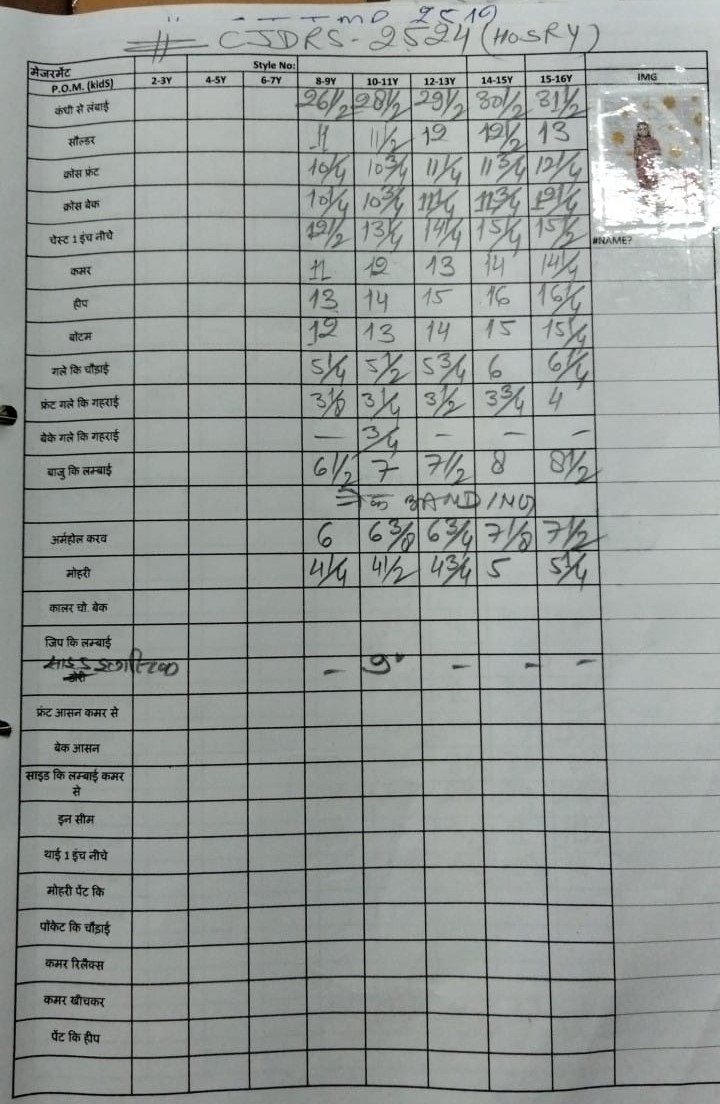 MD 2519
CJDRS-2524 (HOSRY)
मेजरमेंट Style No:
P.O.M. (kidS) 2-3Y 4-5Y 6-7Y 8-9Y 10-11Y 12-13Y 14-15Y 15-16Y IMG
कंधी से लंबाई 26 1/2 28 1/2 29 1/2 30 1/2 31 1/2
सौल्डर 11 11 1/2 12 12 1/2 13
क्रोस फ्रंट 10 1/4 10 3/4 11 1/4 11 3/4 12 1/4
क्रोस बेक 10 1/4 10 3/4 11 1/4 11 3/4 12 1/4
चेस्ट 1 इंच नीचे 12 1/2 13 1/4 14 1/4 15 1/4 15 1/2 #NAME?
कमर 11 12 13 14 14 1/4
हीप 13 14 15 16 16 1/4
बोटम 12 13 14 15 15 1/4
गले कि चौड़ाई 5 1/4 5 1/2 5 3/4 6 6 1/4
फ्रंट गले कि गहराई 3 1/8 3 1/4 3 1/2 3 3/4 4
बेके गले कि गहराई — 3/4 – – –
बाजु कि लम्बाई 6 1/2 7 7 1/2 8 8 1/2
नेक BANDING
अर्महोल करव 6 6 3/8 6 3/4 7 1/8 7 1/2
मोहरी 4 1/4 4 1/2 4 3/4 5 5 1/4
कालर चो. बेक
जिप कि लम्बाई
साइड – 9" – – –
डोरी
फ्रंट आसन कमर से
बेक आसन
साइड कि लम्बाई कमर
से
इन सीम
थाई 1 इंच नीचे
मोहरी पेंट कि
पॉकेट कि चौंड़ाई
कमर रिलैक्स
कमर खीचकर
पेंट कि हीप